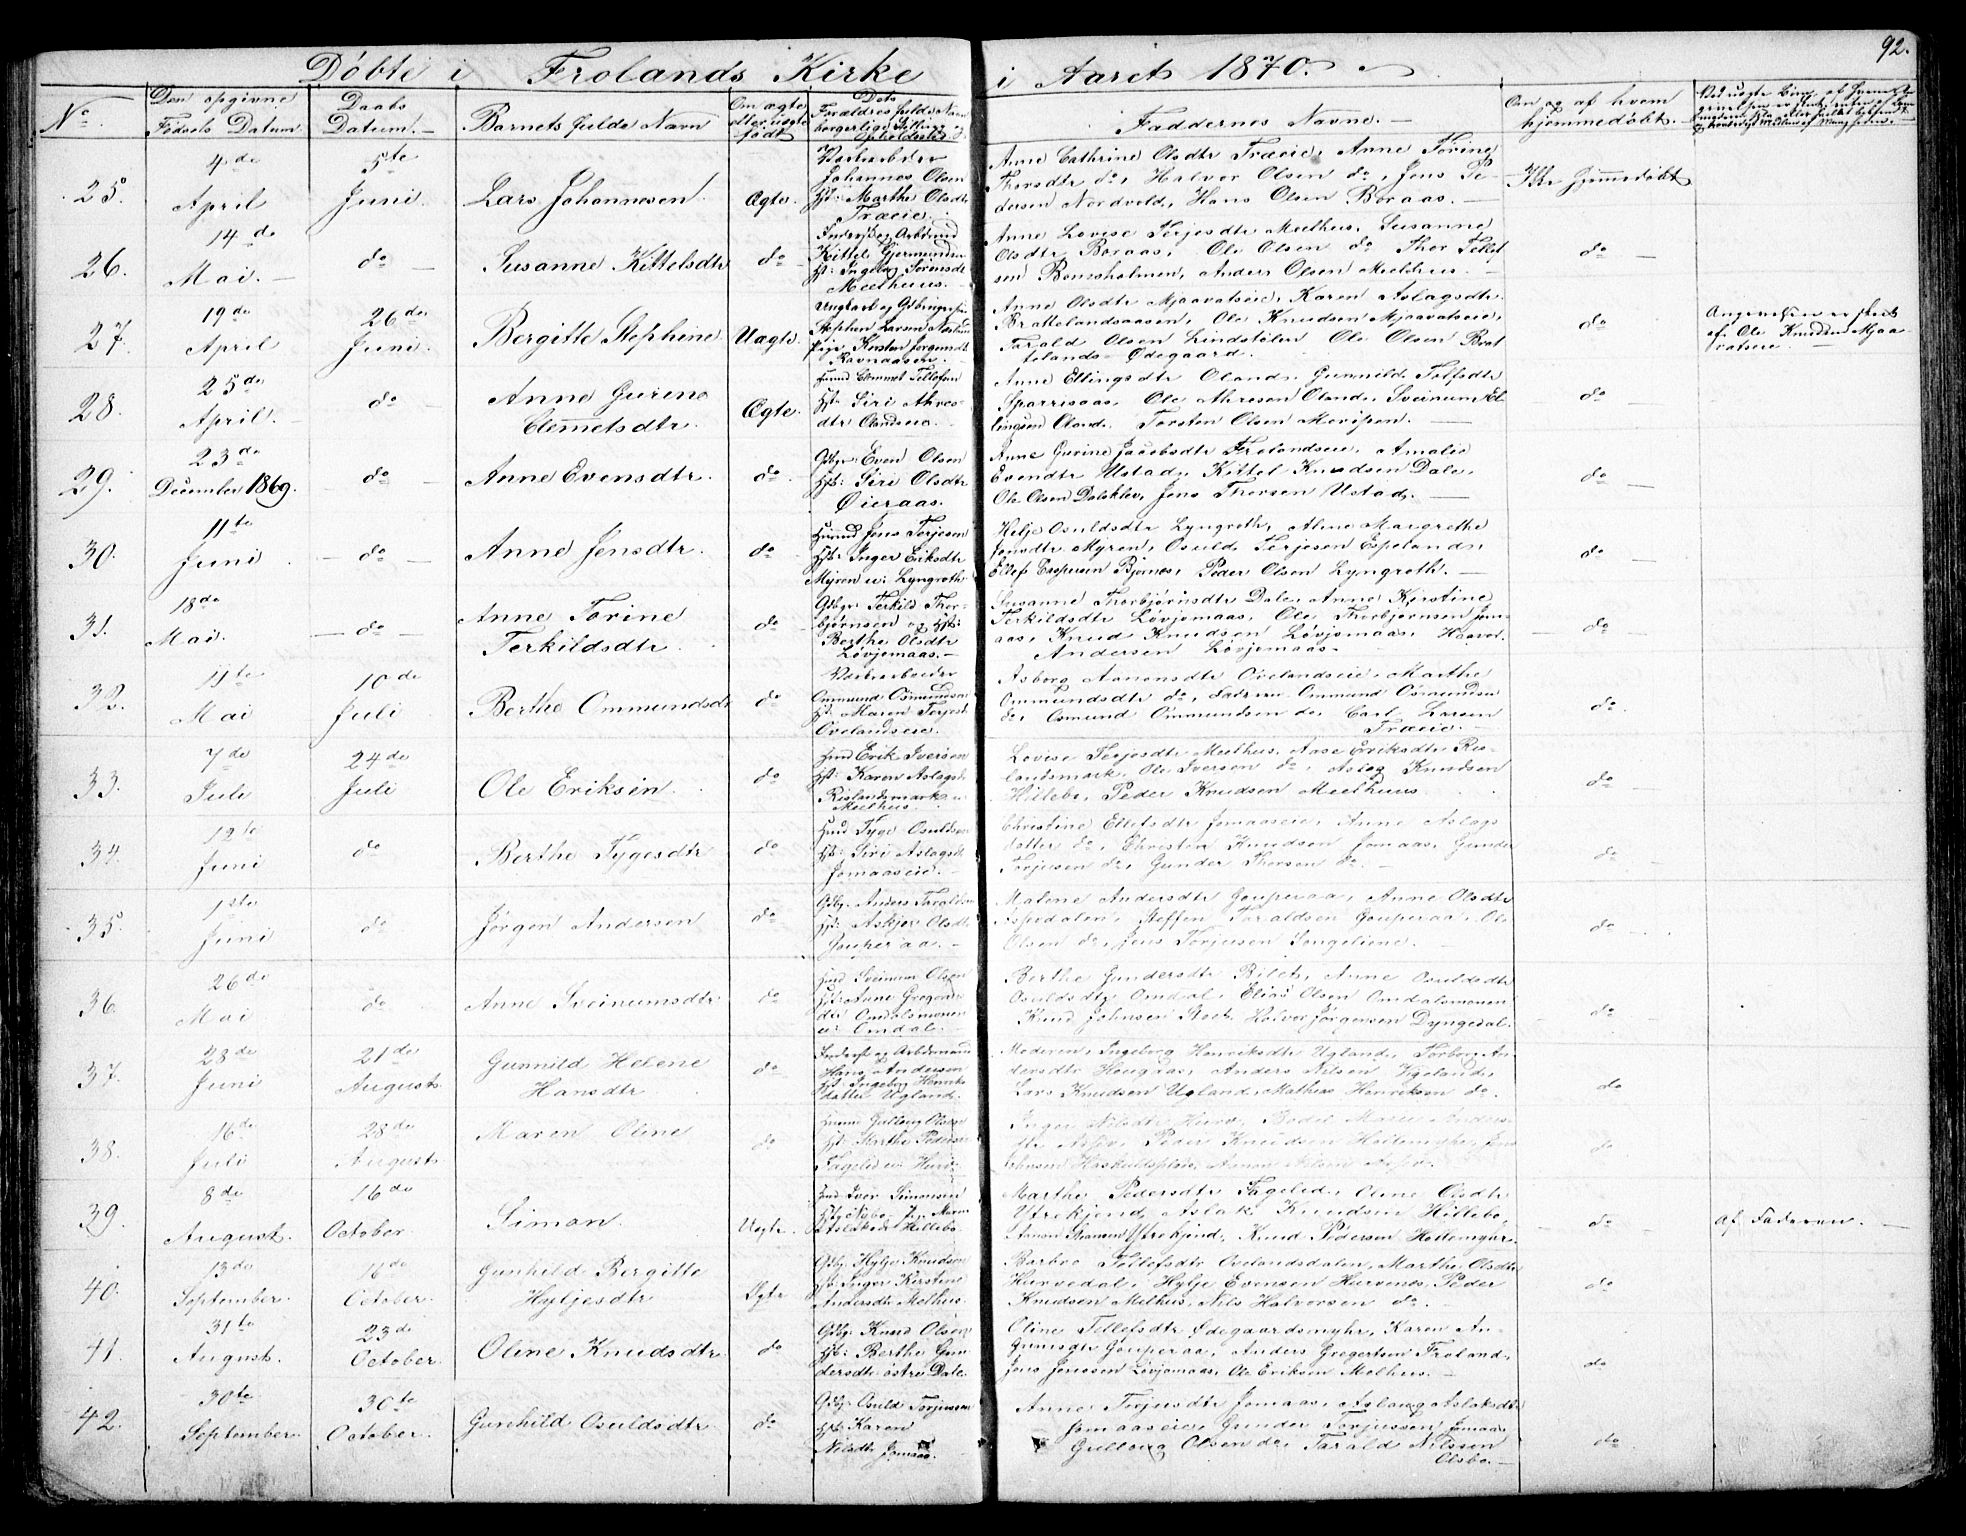 92.
Døbte i Frolands Kirke i Aaret 1870.
No.
Den opgivne Fødsels Datum.
Daabs Datum.
Barnets fulde Navn
Om ægte eller uægte født
Dets Forældres fulde Navn borgerlige Stilling og Opholdssted
Faddernes Navne.
Om og af hvem hjemmedøbt.
25.
4de April
5te Juni
Lars Johannesen
Ægte.
Johannes Olsen
Hst: Marthe Olsdtr
Træeie.
Anne Cathrine Olsdtr Træeie, Anne Torine
Thorsdtr do, Halvor Olsen do, Jens Pe-
dersen Nordvold, Hans Olsen Boraas.
Ikke hjemmedøbt
26.
14de Mai.
do
Susanne Kittelsdtr
do
Inderst og Arbdmand
Kittel Gjermundsen
Hst: Ingeborg
Meelhuus.
Anne Lovise Terjesdtr Meelhus, Susanne
Olsdtr Boraas, Ole Olsen do Thor Tellef
sen Bomsholmen, Anders Olsen Meelhus.
do
27.
19de April
26de Juni.
Bergitte Stephine
Uægte.
Ungkarl og
Stephen Larsen
Pige Kirsten Jørgensdtr
Ravnaasen.
Anne Olsdtr Mjaavatseie, Karen Aslagsdtr
Brattelandsaasen, Ole Knudsen Mjaavatseie,
Tarald Olsen Lindstølen Ole Olsen Brat
telands Ødegaard.
do
Angivelsen er skeet
af Ole Knudsen Mjaa
vatseie
28.
25de April.
do
Anne Gurine
Clemetsdtr.
Ægte.
Huusmd Clemmet Tellefsen
Hst: Siri
dtr Olandseie
Anne Ellingsdtr Oland, Gunnild Tolfsdtr
Sparrisaas, Ole Oland, Sveinum El
lingsen Oland, Torsten Olsen Messel.
do
29.
23de December 1869.
do
Anne Evensdtr.
do
Gdbgr: Even Olsen
Hst: Siri Olsdtr
Øieraas.
Anne Gurine Jacobsdtr Frolandseie, Amalie
Evendtr Ustad, Kittel Knudsen Dale,
Ole Olsen Dalsklev, Jens Thorsen Ustad.
do
30.
11te Juni
do
Anne Jensdtr.
do
Huusmd Jens Terjesen
Hst: Inger Eriksdtr
Myren u: Lyngroth
Helje Osuldsdtr Lyngroth, Aline Margrethe
Jensdtr Myren, Osuld Terjesen Espeland,
Ellef Bjørnes, Peder Olsen Lyngroth.
do
31.
18de Mai.
do
Anne Torine
Terkildsdtr
do
Gdbgr: Terkild Thor-
bjørnsen og Hst:
Berthe Olsdtr
Løvjomaas.
Susanne Thorbjørnsdtr Dale, Anne Kirstine
Terkildsdtr Løvjomaas, Ole Thorbjørnsen Jom-
aas, Knud Knudsen Løvjomaas, Haavor
Andersen Løvjomaas.
do
32.
11te Mai
10de Juli
Berthe Ommundsdtr
do
Ommund Osmundsen
Hst: Maren Terjesd
Ovelandseie.
Asborg Aanonsdtr Ovelandseie, Marthe
Ommundsdtr do, Faderen Ommund Osmundsen
do, Osmund Ommundsen do, Carl Larsen
Træeie.
do.
33.
7de Juli
24de Juli
Ole Eriksen.
do
Hmd Erik Iversen
Hst: Karen Aslagsd
Rislandsmark u:
Meelhus.
Lovise Terjesdtr Meelhus, Aase Eriksdtr Ris-
landsmark, Ole Iversen do, Aslag Knudsen
Hillebo, Peder Knudsen Meelhuus.
do
34.
12te Juni
do
Berthe Tygesdtr
do
Hmd Tyge Osuldsen
Hst: Siri Aslagsd
Jomaaseie.
Christine Ellefsdtr Jomaaseie, Anne Aslags
datter do, Christen Knudsen Jomaas, Gunder
Torjusen do, Gunder Thorsen do.
do
35.
1ste Juni
do
Jørgen Andersen
do
Gdbgr. Anders Taraldsen
Hst: Askjer Olsdtr
Gouperaa.
Malene Andersdtr Gouperaa, Anne Olsdtr
Aspedalen, Steffen Taraldsen Gouperaa, Ole
Olsen do, Jens Torjusen Songeliene.
do
36.
26de Mai
do
Anne Sveinumsdtr
do
Hmd Sveinum Olsen
Hst: Anne Gregers
dtr Omdalsmonen
u: Omdal.
Berthe Gundersdtr Bilet, Anne Osuldsdtr
Osuldsdtr Omdal, Elias Olsen Omdalsmonen
Knud Johnsen Stoet, Halvor Jørgensen Dyngedal.
do
37.
28de Juni
21de August
Gunnild Helene
Hansdtr
do
Inderst og Arbdmand
Hans Andersen
Hst: Ingeborg Henriks
datter Ugland.
Moderen, Ingeborg Henriksdtr Ugland, Torborg An-
dersdtr Hougaas, Anders Nilsen Vigeland,
Lars Knudsen Ugland, Mathias Henriksen do.
do
38.
16de Juli
28de August
Maren Oline
do
Gulleug Olsen
Hst: Marthe Peders
Fagelid u: Hurv
Inger Nilsdtr Hurv, Bodil Marie Anders
dtr Peder Knudsen Holtemyhr,
do
39.
8de August.
16de October.
Simon.
Uægte.
Hmd Iver Simonsen
Aslaksd Hillebo
Marthe Pedersdtr Fagelid, Oline Olsdtr
Ytrekjend, Aslak Knudsen Hillebo,
Aanon Ytrekjend, Knud Pedersen
do
Af Faderen.
40.
13de September.
16de October.
Gunhild Bergitte
Hyljesdtr
Ægte
Gdbgr. Hylje Knudsen
Hst: Inger Kirstine
Andersdtr Melhus.
Barbro Tellefsdtr Ovelandsdalen, Marthe Olsdtr
Hurvedal, Hylje Evensen Hurvenes, Peder
Knudsen Melhus, Nils Halvorsen do.
do
41.
31te August.
23de October.
Oline Knudsdtr
do
Gdbgr: Knud Olsen
Hst: Berthe Gun-
dersdtr østre Dale.
Oline Tellefsdtr Ødegaardsmyhr, Karen An-
Gouperaa, Anders Gregertsen Froland,
Jens Jenssen Løvjomaas, Ole Eriksen Melhus.
do
42.
30te September.
30te October.
Gunhild Osuldsdtr
do
Gdbgr: Osuld Torjussen
Hst: Karen
Nilsdtr Jomaas.
Anne Torjusdtr Jomaas, Aslaug Aslaksdtr
Jomaaseie, Gunder Torjussen Jomaas
Gulleug Olsen do, Tarald Nilssen
Olsbo.
do